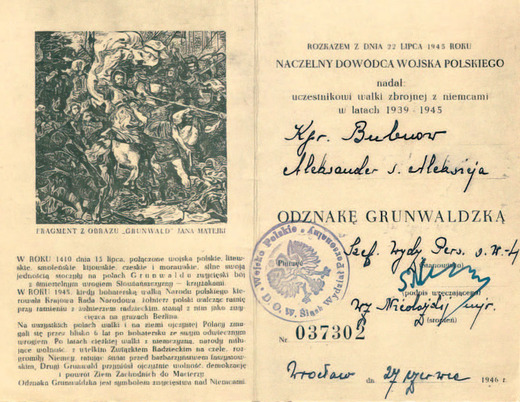 FRAGMENT Z OBRAZU „GRUNWALD" JANA MATEJKI
W ROKU 1410 dnia 15 lipca, połączone wojska polskie, litew-
skie, smoleńskie kijowskie, czeskie i morawskie, silne swoją
jednością stoczyły na polach Grunwaldu zwycięski bój
z śmiertelnym wrogiem Słowiańszczyzny — krzyżakami.
W ROKU 1945, kiedy bohaterską walką Narodu polskiego kie-
rowała Krajowa Rada Narodowa żołnierz polski walcząc ramię
przy ramieniu z żołnierzem radzieckim stanął z nim jako zwy-
cięzca na gruzach Berlina
Na wszystkich polach walki i na ziemi ojczystej Polacy zmagali
się przez blisko 6 lat po bohatersku ze swym odwiecznym
wrogiem. Po latach ciężkiej walki z niemczyzną, narody miłu-
jące wolność, z wielkim Związkiem Radzieckim na czele, roz-
gromiły Niemcy, ratując świat przed barbarzyństwem faszyzmu.
Drugi Grunwald przyniósł ojczyźnie wolność, demokrację
i powrót Ziem Zachodnich do Macierzy
Odznaka Grunwaldzka jest symbolem zwycięstwa nad Niemcami
ROZKAZEM Z DNIA 22 LIPCA 1945 ROKU
NACZELNY DOWÓDCA WOJSKA POLSKIEGO
nadał:
uczestnikowi walki zbrojnej z niemcami
w latach 1939 - 1945
Kpr. Bubnow
Aleksander s. Aleksieja
ODZNAKĘ GRUNWALDZKĄ
Szef. Wydz. Pers.
Pieczęć
Wojsko Polskie
D.O.W. Śląsk
podpis wręczającego
mjr.
(stopień)
Nr 037302
Wrocław dn. 27 czerwiec 1946 r.